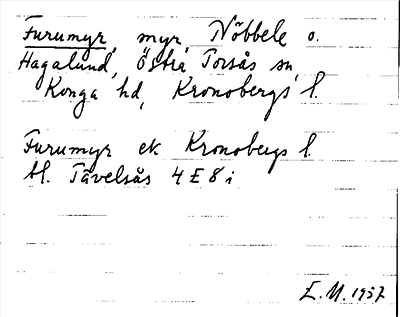 Furumyr, myr, Nöbbele o.
Hagalund, Östra Torsås sn
Konga hd, Kronobergs l.
Furumyr ek Kronobergs l.
bl. Tävelsås 4 E 8 i
E.M. 1957